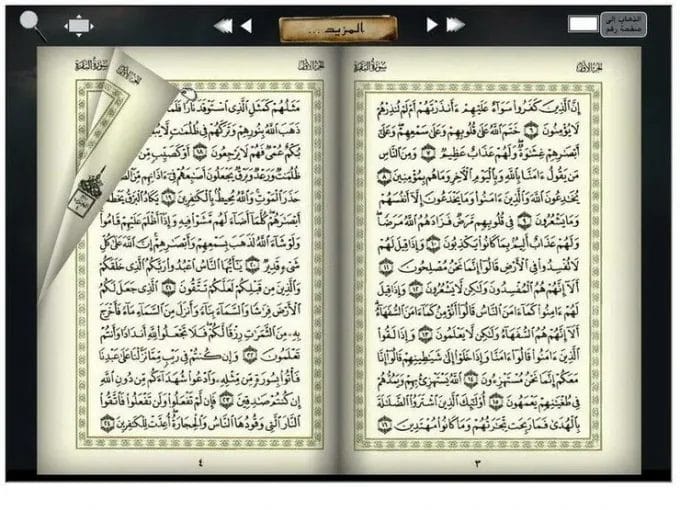 الذهاب إلى
صفحة رقم
المزيد ...
الجزء الأول
سُورَةُ البَقَرَةِ
إِنَّ ٱلَّذِينَ كَفَرُوا۟ سَوَآءٌ عَلَيْهِمْ ءَأَنذَرْتَهُمْ أَمْ لَمْ تُنذِرْهُمْ
لَا يُؤْمِنُونَ ٦ خَتَمَ ٱللَّهُ عَلَىٰ قُلُوبِهِمْ وَعَلَىٰ سَمْعِهِمْ وَعَلَىٰٓ
أَبْصَٰرِهِمْ غِشَٰوَةٌ وَلَهُمْ عَذَابٌ عَظِيمٌ ٧ وَمِنَ ٱلنَّاسِ
مَن يَقُولُ ءَامَنَّا بِٱللَّهِ وَبِٱلْيَوْمِ ٱلْءَاخِرِ وَمَا هُم بِمُؤْمِنِينَ ٨
يُخَٰدِعُونَ ٱللَّهَ وَٱلَّذِينَ ءَامَنُوا۟ وَمَا يَخْدَعُونَ إِلَّآ أَنفُسَهُمْ
وَمَا يَشْعُرُونَ ٩ فِى قُلُوبِهِم مَّرَضٌ فَزَادَهُمُ ٱللَّهُ مَرَضًا
وَلَهُمْ عَذَابٌ أَلِيمٌۢ بِمَا كَانُوا۟ يَكْذِبُونَ ١٠ وَإِذَا قِيلَ لَهُمْ
لَا تُفْسِدُوا۟ فِى ٱلْأَرْضِ قَالُوٓا۟ إِنَّمَا نَحْنُ مُصْلِحُونَ ١١
أَلَآ إِنَّهُمْ هُمُ ٱلْمُفْسِدُونَ وَلَٰكِن لَّا يَشْعُرُونَ ١٢ وَإِذَا قِيلَ
لَهُمْ ءَامِنُوا۟ كَمَآ ءَامَنَ ٱلنَّاسُ قَالُوٓا۟ أَنُؤْمِنُ كَمَآ ءَامَنَ ٱلسُّفَهَآءُ
أَلَآ إِنَّهُمْ هُمُ ٱلسُّفَهَآءُ وَلَٰكِن لَّا يَعْلَمُونَ ١٣ وَإِذَا لَقُوا۟
ٱلَّذِينَ ءَامَنُوا۟ قَالُوٓا۟ ءَامَنَّا وَإِذَا خَلَوْا۟ إِلَىٰ شَيَٰطِينِهِمْ قَالُوٓا۟ إِنَّا
مَعَكُمْ إِنَّمَا نَحْنُ مُسْتَهْزِءُونَ ١٤ ٱللَّهُ يَسْتَهْزِئُ بِهِمْ وَيَمُدُّهُمْ
فِى طُغْيَٰنِهِمْ يَعْمَهُونَ ١٥ أُو۟لَٰٓئِكَ ٱلَّذِينَ ٱشْتَرَوُا۟ ٱلضَّلَٰلَةَ
بِٱلْهُدَىٰ فَمَا رَبِحَت تِّجَٰرَتُهُمْ وَمَا كَانُوا۟ مُهْتَدِينَ ١٦
٣
الجزء الأول
سُورَةُ البَقَرَةِ
مَثَلُهُمْ كَمَثَلِ ٱلَّذِى ٱسْتَوْقَدَ نَارًا فَلَمَّآ
ذَهَبَ ٱللَّهُ بِنُورِهِمْ وَتَرَكَهُمْ فِى ظُلُمَٰتٍ لَّا
بُكْمٌ عُمْىٌ فَهُمْ لَا يَرْجِعُونَ ١٨ أَوْ كَصَيِّبٍ مِّنَ
ظُلُمَٰتٌ وَرَعْدٌ وَبَرْقٌ يَجْعَلُونَ أَصَٰبِعَهُمْ فِىٓ ءَاذَانِهِم مِّنَ
حَذَرَ ٱلْمَوْتِ وَٱللَّهُ مُحِيطٌۢ بِٱلْكَٰفِرِينَ ١٩ يَكَادُ ٱلْبَرْقُ يَخْطَفُ
أَبْصَٰرَهُمْ كُلَّمَآ أَضَآءَ لَهُم مَّشَوْا۟ فِيهِ وَإِذَآ أَظْلَمَ عَلَيْهِمْ قَامُوا۟
وَلَوْ شَآءَ ٱللَّهُ لَذَهَبَ بِسَمْعِهِمْ وَأَبْصَٰرِهِمْ إِنَّ ٱللَّهَ عَلَىٰ كُلِّ
شَىْءٍ قَدِيرٌ ٢٠ يَٰٓأَيُّهَا ٱلنَّاسُ ٱعْبُدُوا۟ رَبَّكُمُ ٱلَّذِى خَلَقَكُمْ
وَٱلَّذِينَ مِن قَبْلِكُمْ لَعَلَّكُمْ تَتَّقُونَ ٢١ ٱلَّذِى جَعَلَ لَكُمُ
ٱلْأَرْضَ فِرَٰشًا وَٱلسَّمَآءَ بِنَآءً وَأَنزَلَ مِنَ ٱلسَّمَآءِ مَآءً فَأَخْرَجَ
بِهِۦ مِنَ ٱلثَّمَرَٰتِ رِزْقًا لَّكُمْ فَلَا تَجْعَلُوا۟ لِلَّهِ أَندَادًا وَأَنتُمْ
تَعْلَمُونَ ٢٢ وَإِن كُنتُمْ فِى رَيْبٍ مِّمَّا نَزَّلْنَا عَلَىٰ عَبْدِنَا
فَأْتُوا۟ بِسُورَةٍ مِّن مِّثْلِهِۦ وَٱدْعُوا۟ شُهَدَآءَكُم مِّن دُونِ ٱللَّهِ
إِن كُنتُمْ صَٰدِقِينَ ٢٣ فَإِن لَّمْ تَفْعَلُوا۟ وَلَن تَفْعَلُوا۟ فَٱتَّقُوا۟
ٱلنَّارَ ٱلَّتِى وَقُودُهَا ٱلنَّاسُ وَٱلْحِجَارَةُ أُعِدَّتْ لِلْكَٰفِرِينَ ٢٤
٤
الجزء الأول